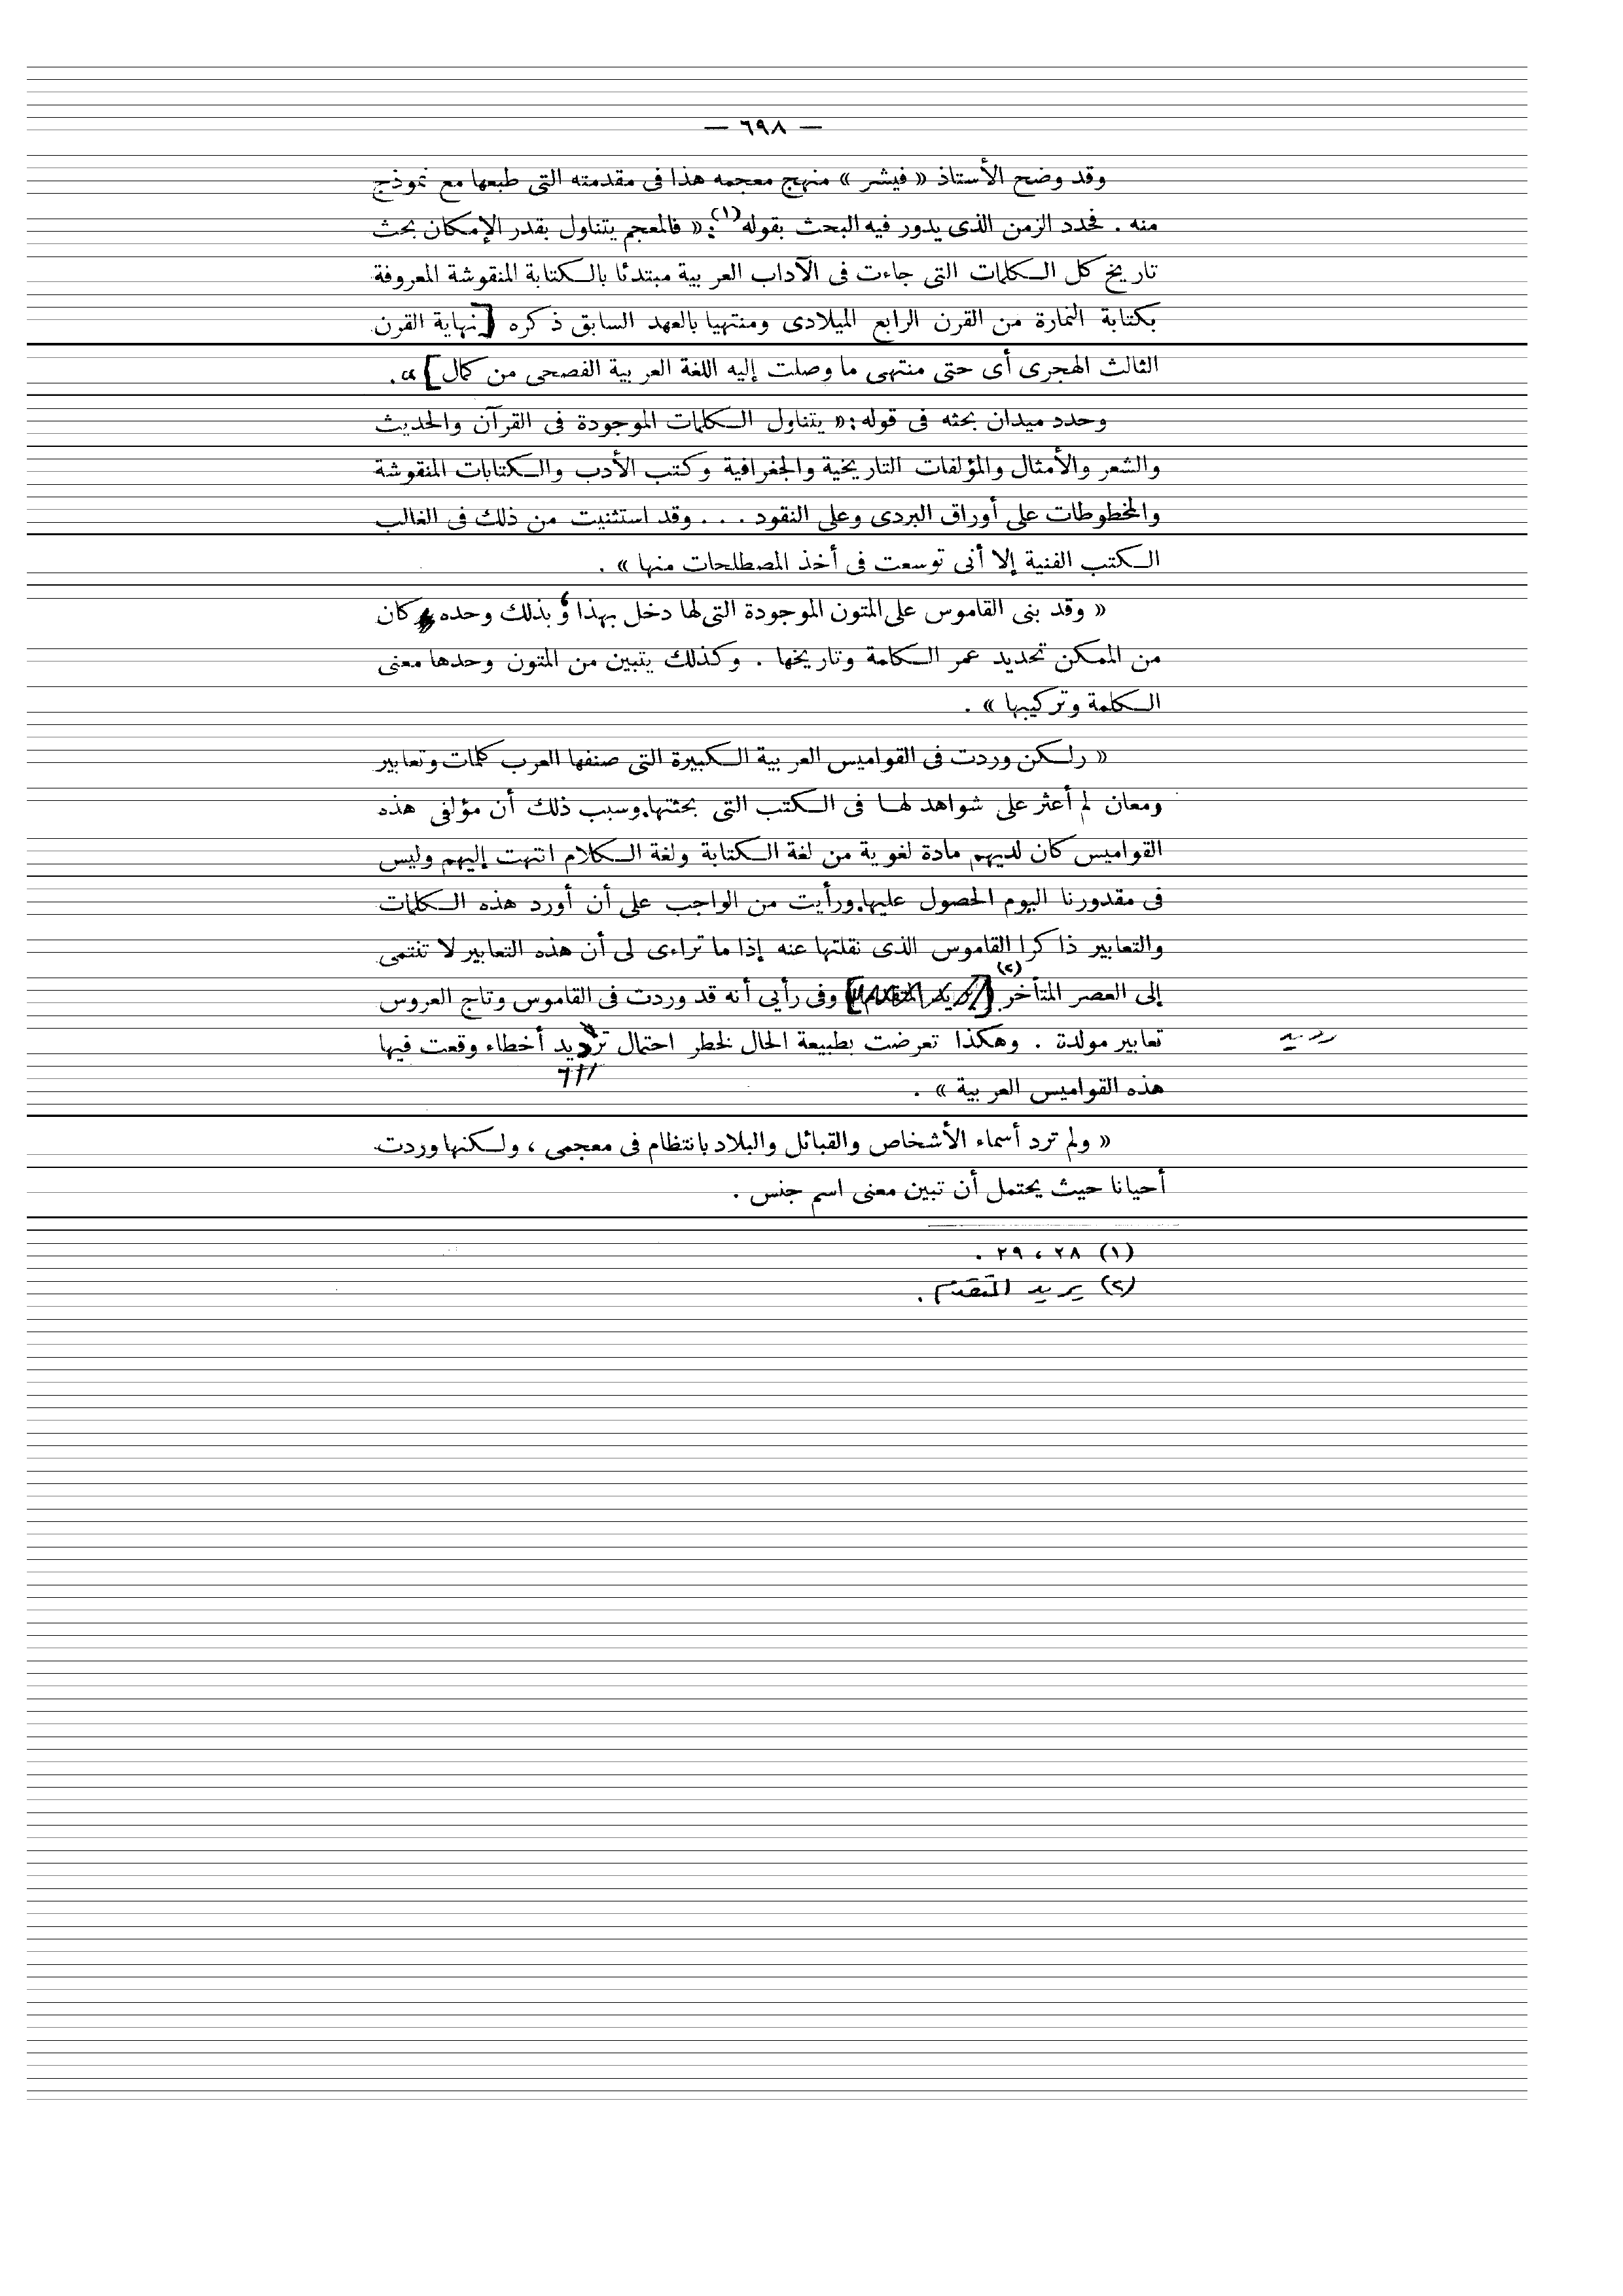 — ٦٩٨ —
وقد وضح الأستاذ « فيشر » منهج معجمه هذا فى مقدمته التى طبعها مع نموذج
منه . فحدد الزمن الذى يدور فيه البحث بقوله(١): « فالمعجم يتناول بقدر الإمكان بحث
تاريخ كل الكلمات التى جاءت فى الآداب العربية مبتدئا بالكتابة المنقوشة المعروفة
بكتابة النمارة من القرن الرابع الميلادى ومنتهيا بالعهد السابق ذكره [نهاية القرن
الثالث الهجرى أى حتى منتهى ما وصلت إليه اللغة العربية الفصحى من كمال] » .
وحدد ميدان بحثه فى قوله: « يتناول الكلمات الموجودة فى القرآن والحديث
والشعر والأمثال والمؤلفات التاريخية والجغرافية وكتب الأدب والكتابات المنقوشة
والمخطوطات على أوراق البردى وعلى النقود . . . وقد استثنيت من ذلك فى الغالب
الكتب الفنية إلا أنى توسعت فى أخذ المصطلحات منها » .
« وقد بنى القاموس على المتون الموجودة التى لها دخل بهذا ، وبذلك وحده كان
من الممكن تحديد عمر الكلمة وتاريخها . وكذلك يتبين من المتون وحدها معنى
الكلمة وتركيبها » .
« ولكن وردت فى القواميس العربية الكبيرة التى صنفها العرب كلمات وتعابير
ومعان لم أعثر على شواهد لها فى الكتب التى بحثتها.وسبب ذلك أن مؤلفى هذه
القواميس كان لديهم مادة لغوية من لغة الكتابة ولغة الكلام انتهت إليهم وليس
فى مقدورنا اليوم الحصول عليها.ورأيت من الواجب على أن أورد هذه الكلمات
والتعابير ذاكرا القاموس الذى نقلتها عنه إذا ما تراءى لى أن هذه التعابير لا تنتمى
إلى العصر المتأخر(٢) [يريد المتقدم] وفى رأيى أنه قد وردت فى القاموس وتاج العروس
تعابير مولدة . وهكذا تعرضت بطبيعة الحال لخطر احتمال ترديد أخطاء وقعت فيها
هذه القواميس العربية » .
« ولم ترد أسماء الأشخاص والقبائل والبلاد بانتظام فى معجمى ، ولكنها وردت
أحيانا حيث يحتمل أن تبين معنى اسم جنس .
(١) ٢٨ ، ٢٩ .
(٢) يريد المتقدم .